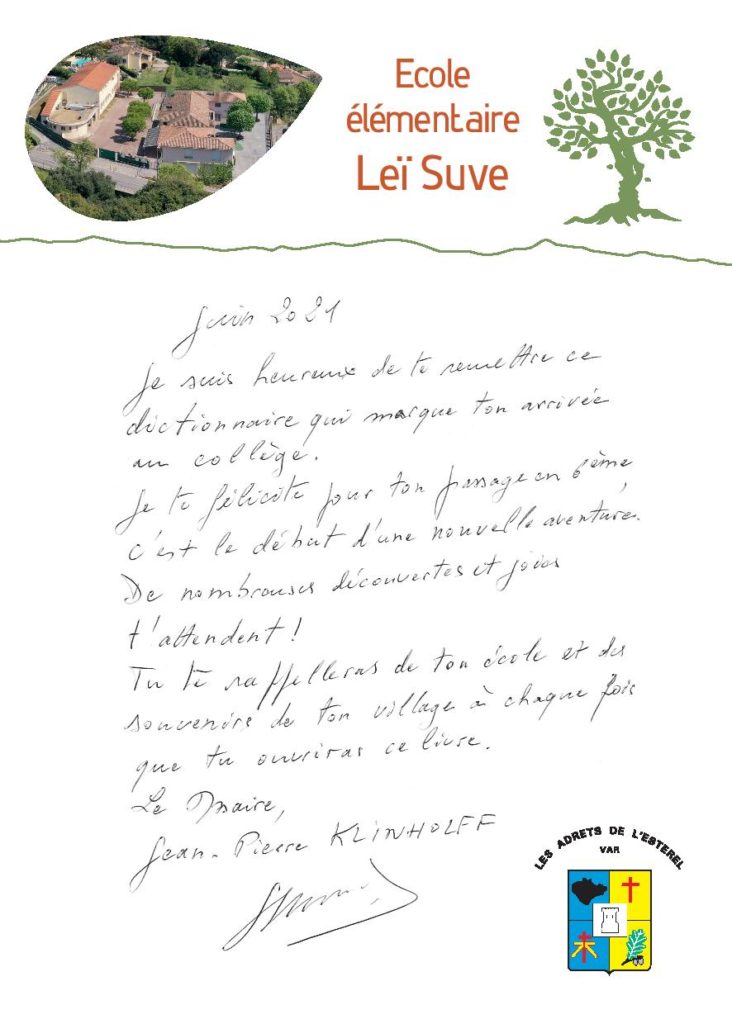 Ecole
élémentaire
Leï Suve
Juin 2021
Je suis heureux de te remettre ce
dictionnaire qui marque ton arrivée
au collège.
Je te félicite pour ton passage en 6ème,
c'est le début d'une nouvelle aventure.
De nombreuses découvertes et joies
t'attendent !
Tu te rappelleras de ton école et des
souvenirs de ton village à chaque fois
que tu ouvriras ce livre.
Le Maire,
Jean-Pierre KLINHOLFF
LES ADRETS DE L'ESTEREL
VAR